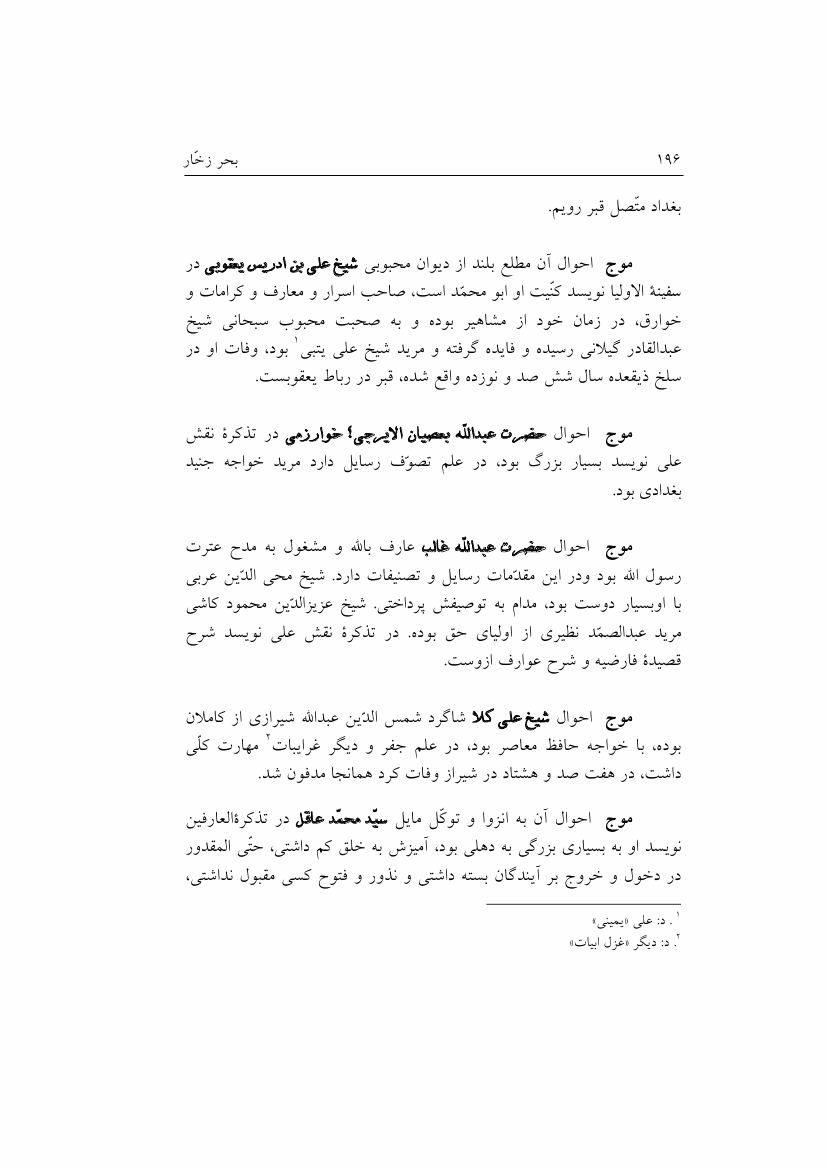 ۱۹۶ بحر زخّار
بغداد متّصل قبر رویم.
موج احوال آن مطلع بلند از دیوان محبوبی شیخ علی بن ادریس یعقوبی در
سفینۀ الاولیا نویسد کنّیت او ابو محمّد است، صاحب اسرار و معارف و کرامات و
خوارق، در زمان خود از مشاهیر بوده و به صحبت محبوب سبحانی شیخ
عبدالقادر گیلانی رسیده و فایده گرفته و مرید شیخ علی یتبی۱ بود، وفات او در
سلخ ذیقعده سال شش صد و نوزده واقع شده، قبر در رباط یعقوبست.
موج احوال حضرت عبداللّه بعصیان الایرجی؟ خوارزمی در تذکرۀ نقش
علی نویسد بسیار بزرگ بود، در علم تصوّف رسایل دارد مرید خواجه جنید
بغدادی بود.
موج احوال حضرت عبداللّه غالب عارف بالله و مشغول به مدح عترت
رسول الله بود ودر این مقدّمات رسایل و تصنیفات دارد. شیخ محی الدّین عربی
با اوبسیار دوست بود، مدام به توصیفش پرداختی. شیخ عزیزالدّین محمود کاشی
مرید عبدالصمّد نظیری از اولیای حق بوده. در تذکرۀ نقش علی نویسد شرح
قصیدۀ فارضیه و شرح عوارف ازوست.
موج احوال شیخ علی کلا شاگرد شمس الدّین عبدالله شیرازی از کاملان
بوده، با خواجه حافظ معاصر بود، در علم جفر و دیگر غرایبات۲ مهارت کلّی
داشت، در هفت صد و هشتاد در شیراز وفات کرد همانجا مدفون شد.
موج احوال آن به انزوا و توکّل مایل سیّد محمّد عاقل در تذکرۀالعارفین
نویسد او به بسیاری بزرگی به دهلی بود، آمیزش به خلق کم داشتی، حتّی المقدور
در دخول و خروج بر آیندگان بسته داشتی و نذور و فتوح کسی مقبول نداشتی،
۱. د: علی «یمینی»
۲. د: دیگر «غزل ابیات»